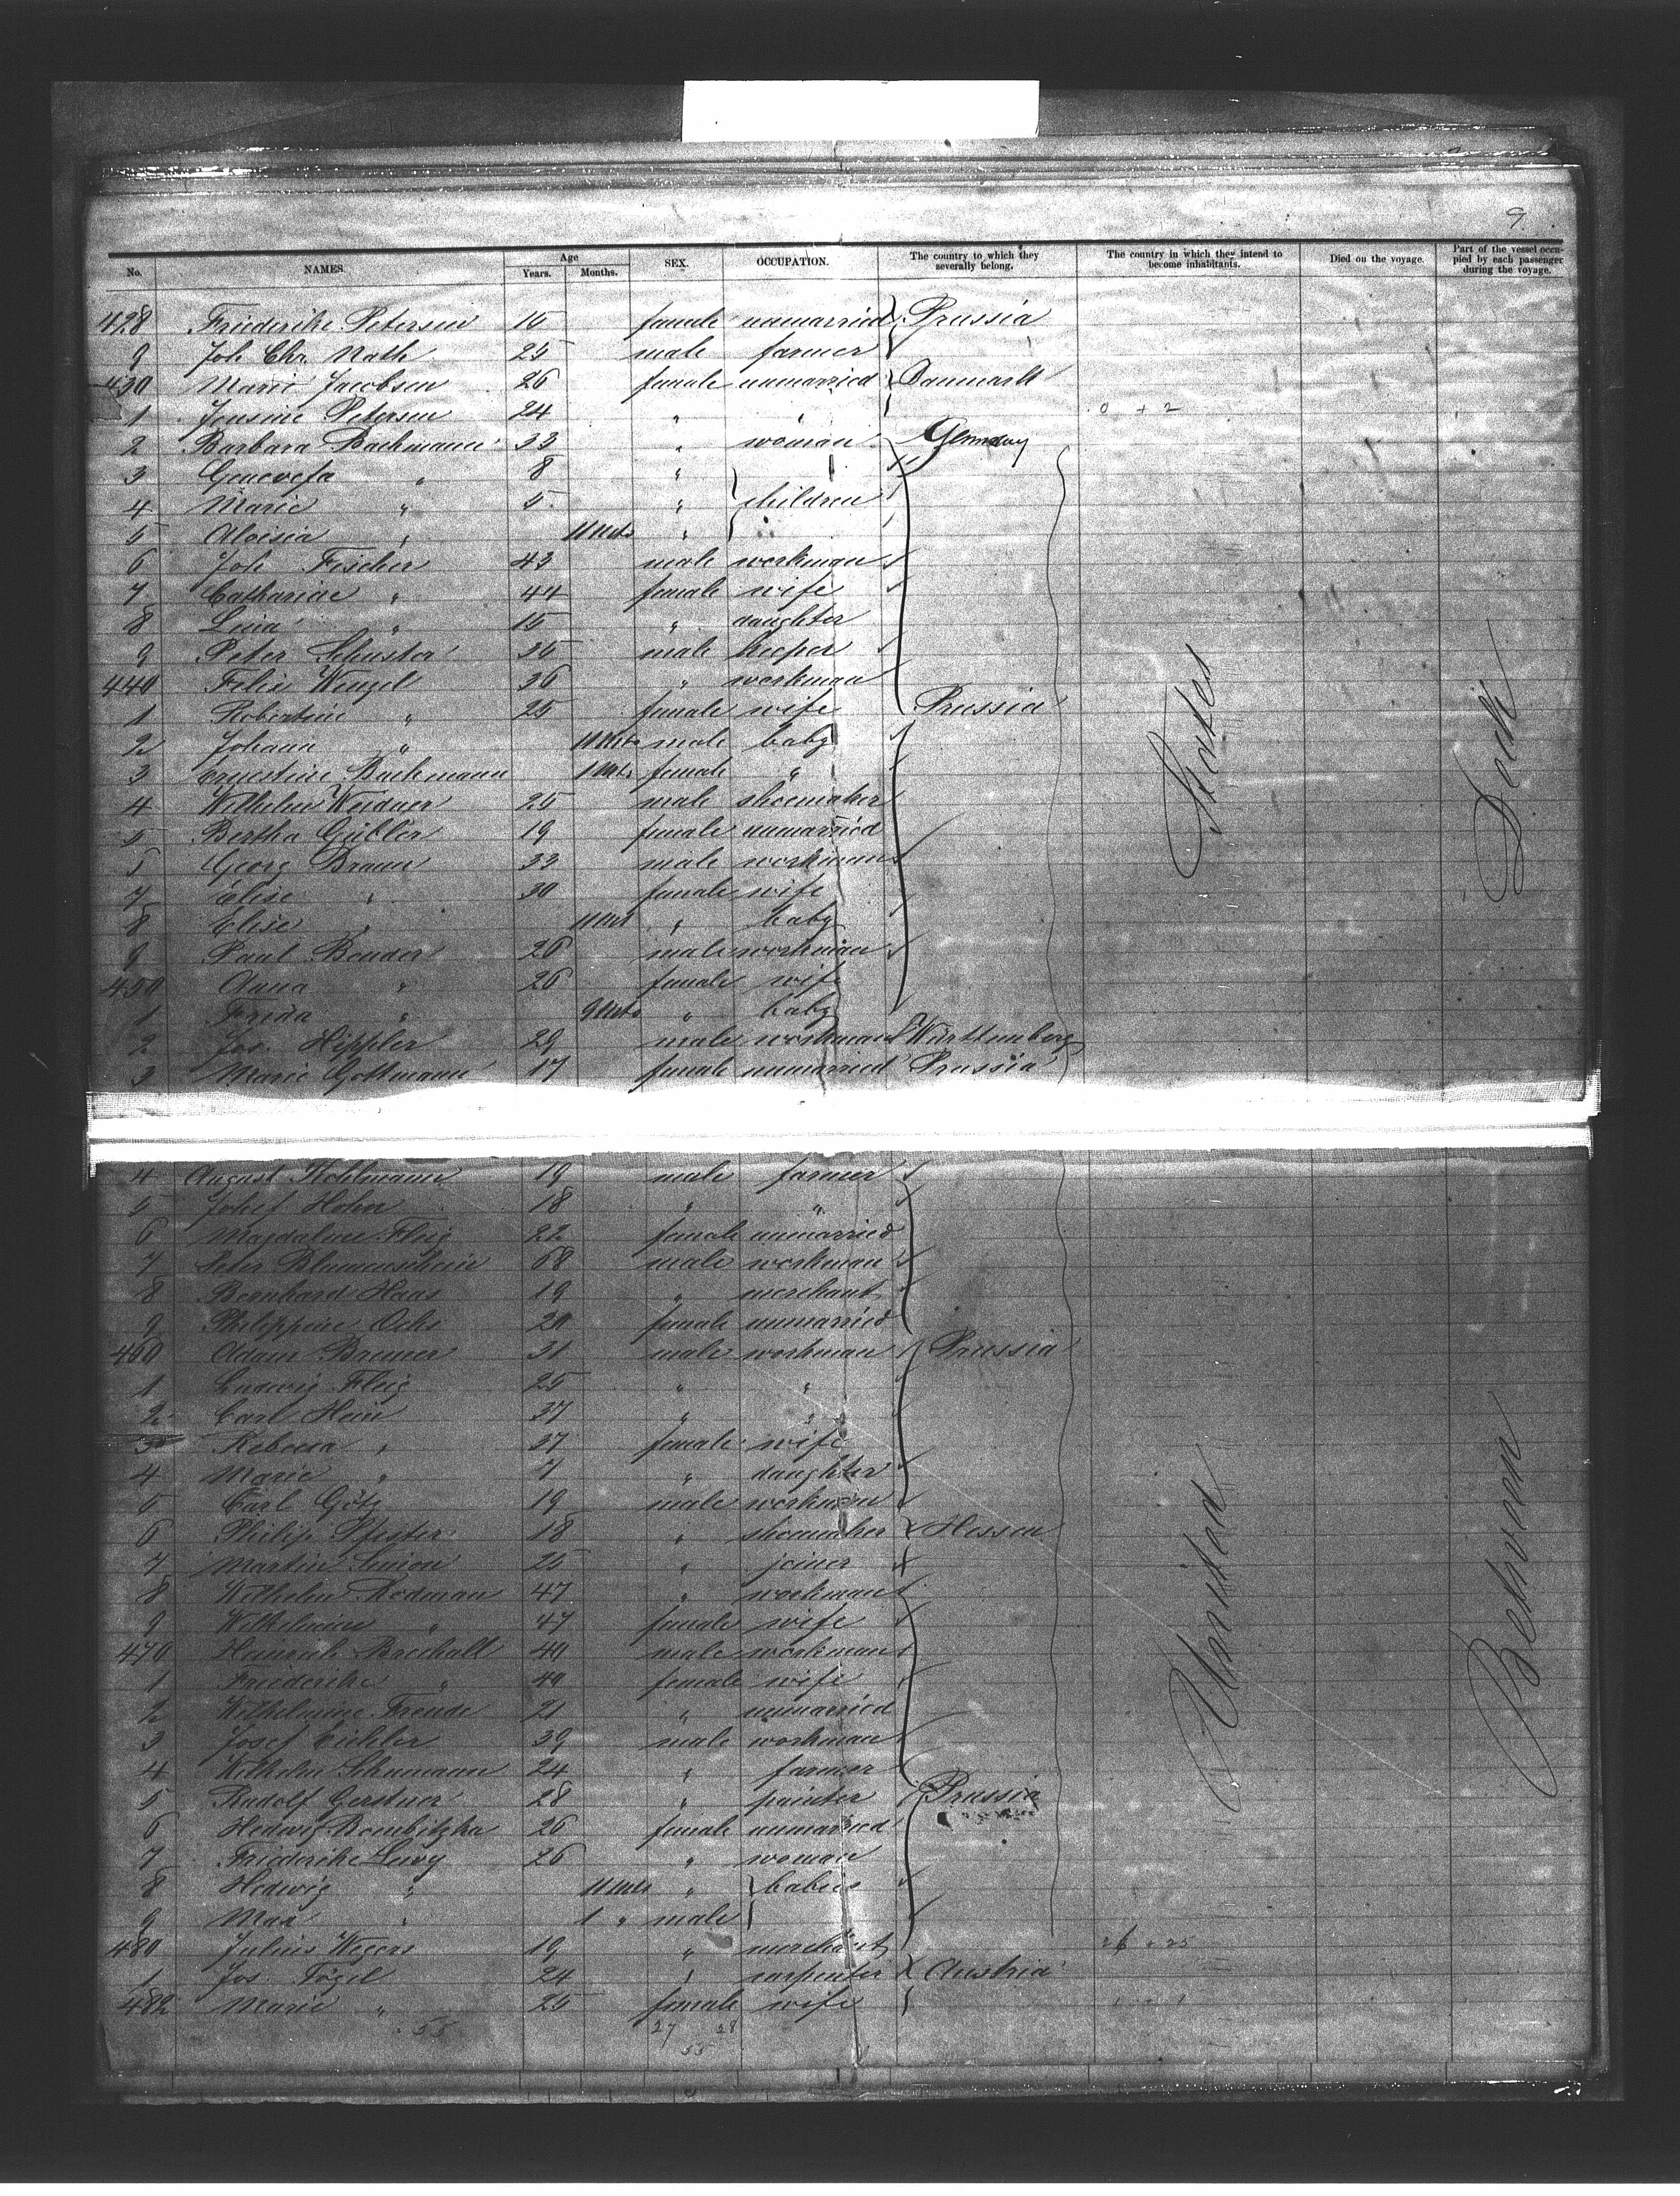 9
No. NAMES. Age Years. Months. SEX. OCCUPATION. The country to which they severally belong. The country in which they intend to become inhabitants. Died on the voyage. Part of the vessel occupied by each passenger during the voyage.
428 Friederike Petersen 16 female unmarried Prussia
9 Joh Chr. Nath 25 male farmer
430 Marie Jacobsen 26 female unmarried Danmark
1 Jensine Petersen 24 " " 0 + 2
2 Barbara Bachmann 33 " woman Germany
3 Genovefa " 8 "
4 Marie " 5 " children
5 Aloisia " 11 Mts "
6 Joh Fischer 43 male workman
7 Catharine " 44 female wife
8 Lina " 15 " daughter
9 Peter Schuster 36 male keeper
440 Felix Wenzel 36 " workman
1 Robertine " 25 female wife Prussia
2 Johann " 11 Mts male baby
3 Ernestine Bachmann 1 Mt. female "
4 Wilhelm Weidner 25 male shoemaker
5 Bertha Gübler 19 female unmarried
5 Georg Braun 33 male workman
7 Elise " 30 female wife
8 Elise " 11 Mts " baby
9 Paul Bender 26 male workman
450 Anna " 26 female wife
1 Frida " 9 Mts " baby
2 Jos. Hippler 29 male workman Württemberg
3 Marie Gottmann 17 female unmarried Prussia
4 August Kohlmann 19 male farmer
5 Josef Hohn 18 " "
6 Magdalene Fleig 22 female unmarried
7 Peter Blumenschein 68 male workman
8 Bernhard Haas 19 " merchant
9 Philippine Ochs 20 female unmarried
460 Adam Brenner 31 male workman Prussia
1 Ludwig Fleig 25 " "
2 Carl Hein 37 " "
3 Rebecca " 37 female wife
4 Marie " 7 " daughter
5 Carl Götz 19 male workman
6 Philip Pfister 18 " shoemaker Hessen
7 Martin Simon 25 " joiner
8 Wilhelm Redman 47 " workman
9 Wilhelmine " 47 female wife
470 Heinrich 40 male workman
1 Friederike " 40 female wife
2 Wilhelmine Freude 21 " unmarried
3 Josef Eichler 39 male workman
4 Wilhelm Schumann 24 " farmer
5 Rudolf Gerstner 28 " painter Prussia
6 Hedwig 26 female unmarried
7 Friederike Levy 26 " woman
8 Hedwig " 11 Mts " babies
9 Max " 1 " male
480 Julius Wegers 19 " merchant 26 + 25
1 Jos. Tögel 24 " carpenter Austria
482 Marie " 25 female wife
55 27 28
55
United States
Between Deck